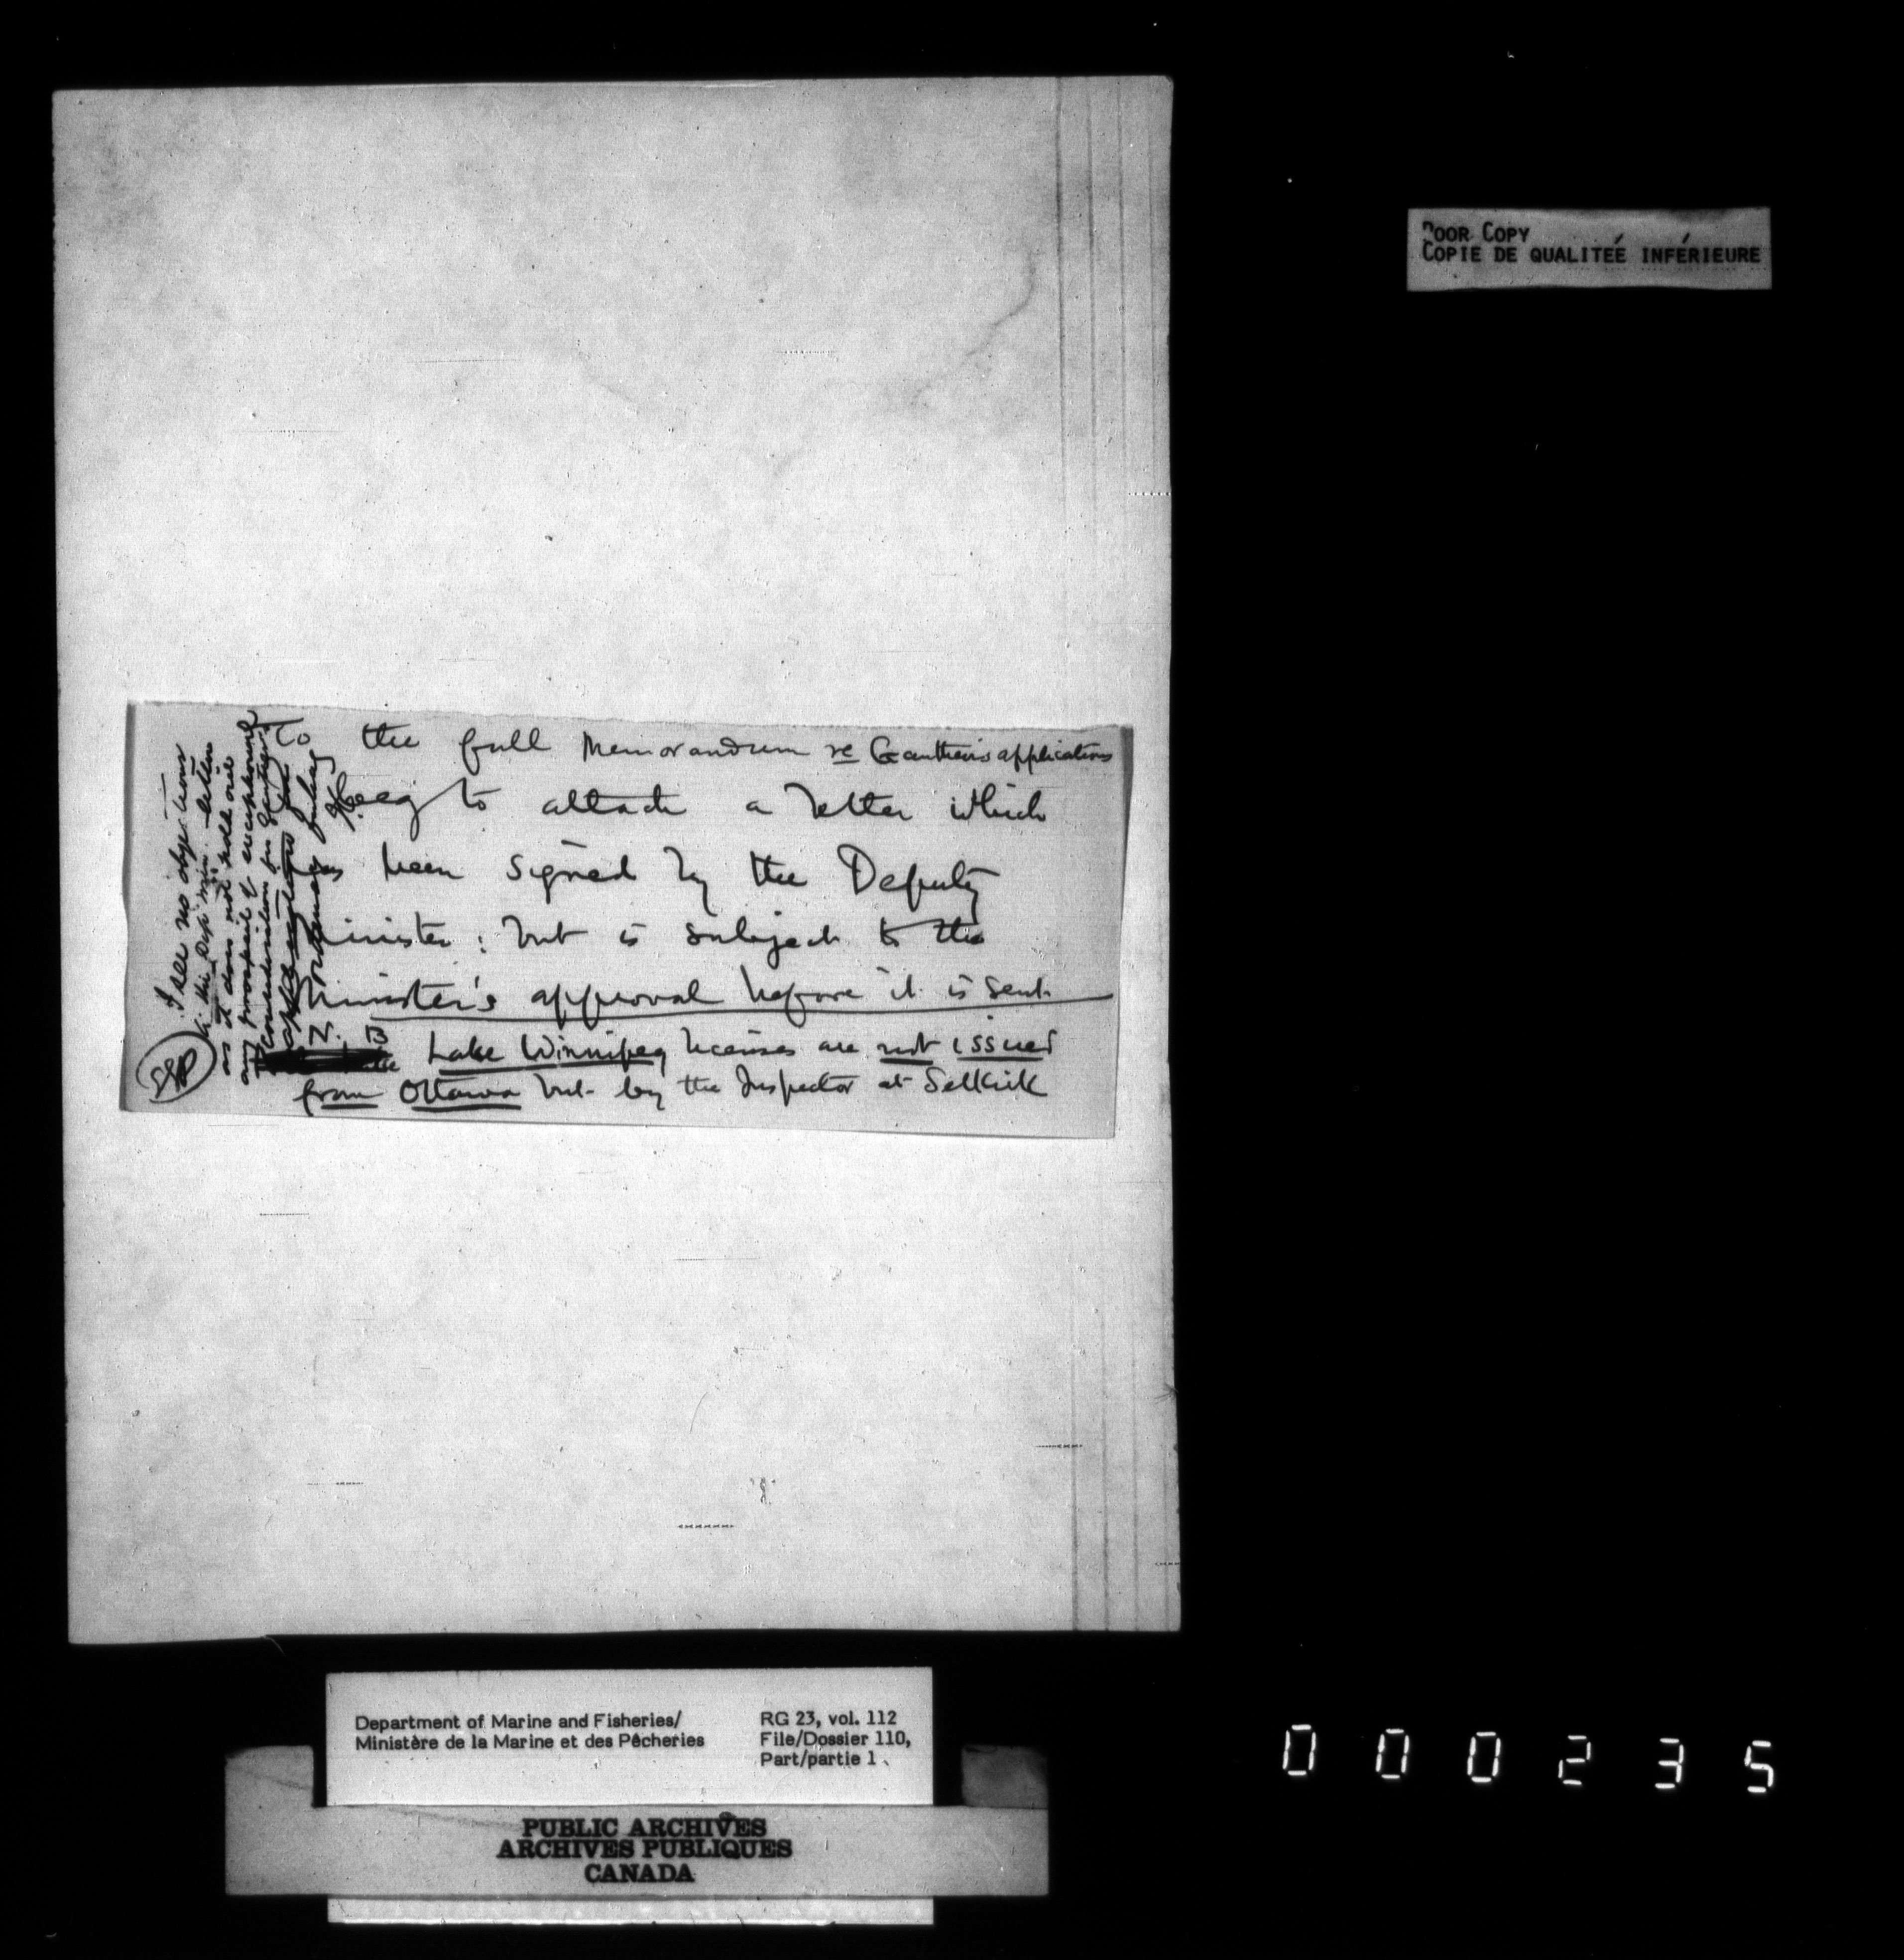 POOR COPY
COPIE DE QUALITEÉ INFÉRIEURE
To the full Memorandum re Gauthier's application
I beg to attach a letter which
has been signed by the Deputy
Minister: but is subject to the
Minister's approval before it is sent
N. B
Lake Winnipeg licenses are not issued
from Ottawa but by the Inspector at Selkirk
I see no objections
to this Dep min. letter
as it does not hold out
any prospect of exceptional
consideration for Gauthier's
application
Department of Marine and Fisheries/
Ministère de la Marine et des Pêcheries
RG 23, vol. 112
File/Dossier 110,
Part/partie 1
PUBLIC ARCHIVES
ARCHIVES PUBLIQUES
CANADA
000235